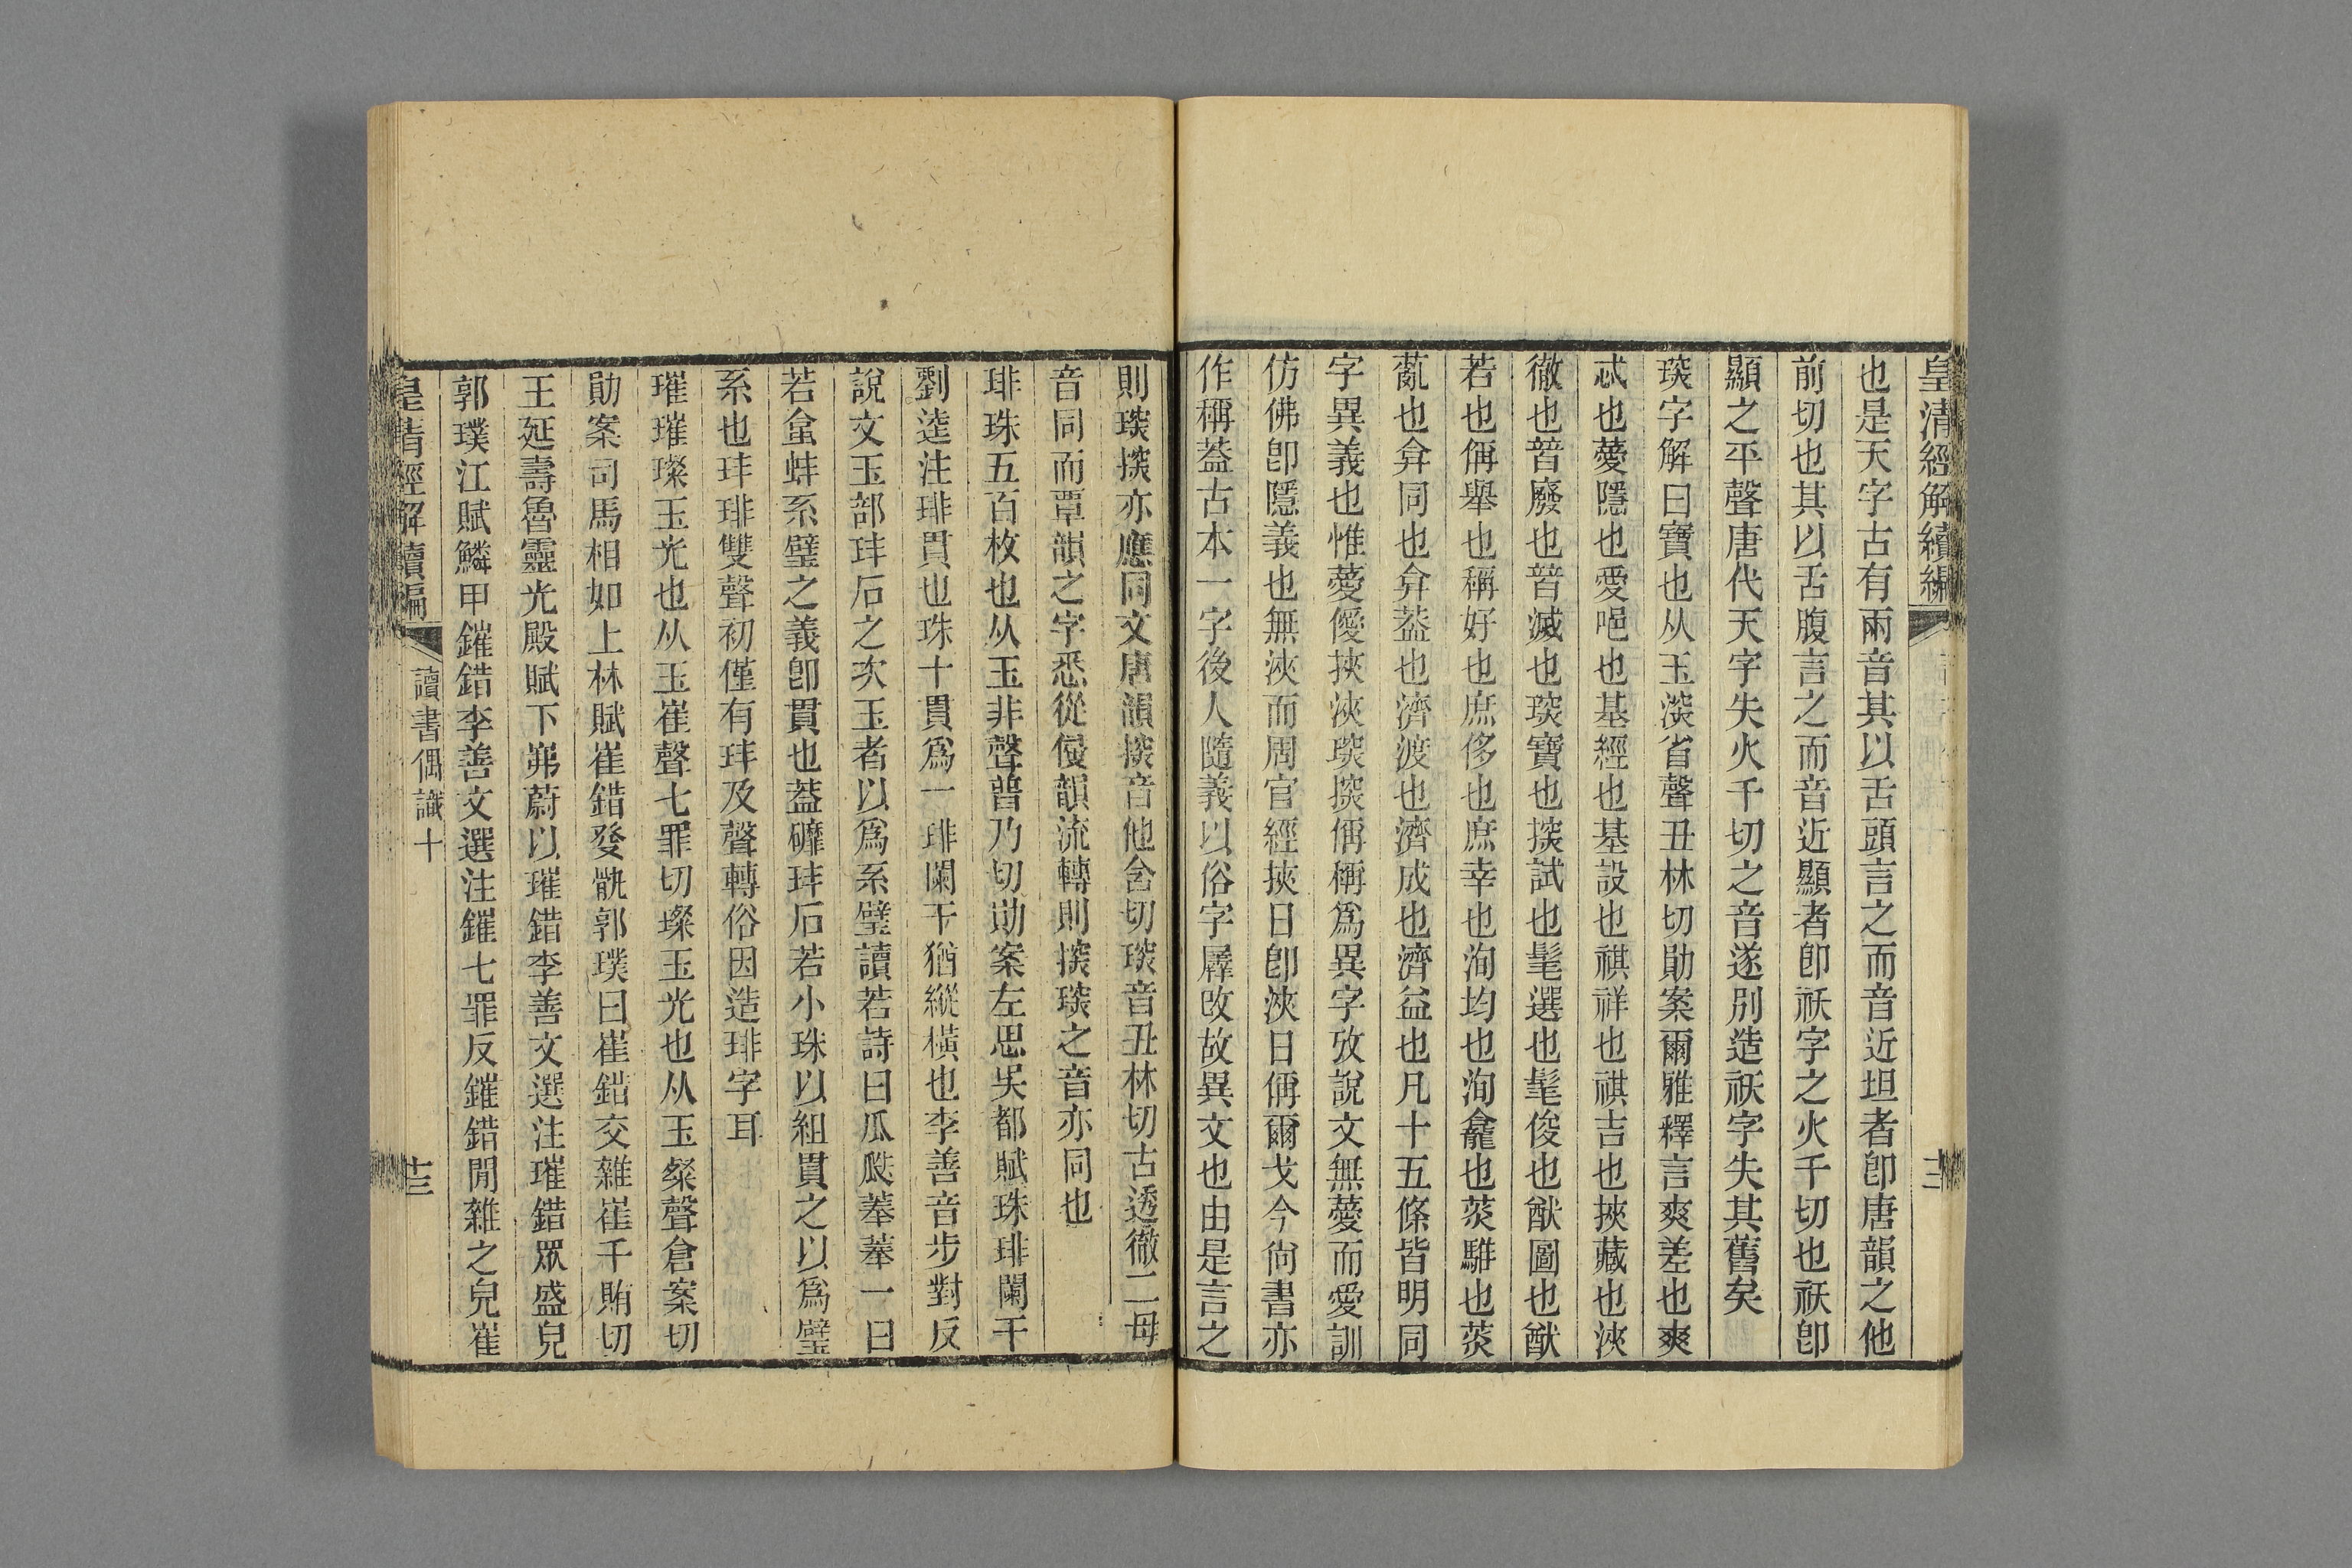 皇清經解續編
也是天字古有兩音其以舌頭言之而音近坦者卽唐韻之他
前切也其以舌腹言之而音近顯者卽祆字之火千切也祆卽
顯之平聲唐代天字失火千切之音遂別造祆字失其舊矣
琛字解曰寶也从玉深省聲丑林切勛案爾雅釋言爽差也爽
忒也薆隱也愛唈也基經也基設也祺祥也祺吉也挾藏也浹
徹也暜廢也暜滅也琛寶也探試也髦選也髦俊也猷圖也猷
若也偁舉也稱好也庶侈也庶幸也洵均也洵龕也菼騅也菼
薍也弇同也弇蓋也濟渡也濟成也濟益也凡十五條皆明同
字異義也惟薆僾挾浹琛探偁稱爲異字攷說文無薆而愛訓
仿佛卽隱義也無浹而周官經挾日卽浹日偁爾戈今尙書亦
作稱蓋古本一字後人隨義以俗字羼改故異文也由是言之
十二
則琛探亦應同文唐韻探音他含切琛音丑林切古透徹二母
音同而覃韻之字悉從侵韻流轉則探琛之音亦同也
琲珠五百枚也从玉非聲普乃切勛案左思吳都賦珠琲闌干
劉逵注琲貫也珠十貫爲一琲闌干猶縱橫也李善音步對反
說文玉部玤石之次玉者以爲系璧讀若詩曰瓜瓞菶菶一曰
若蛤蚌系璧之義卽貫也蓋礲玤石若小珠以組貫之以爲璧
系也玤琲雙聲初僅有玤及聲轉俗因造琲字耳
璀璀璨玉光也从玉崔聲七罪切璨玉光也从玉粲聲倉案切
勛案司馬相如上林賦崔錯癹骫郭璞曰崔錯交雜崔千賄切
王延壽魯靈光殿賦下岪蔚以璀錯李善文選注璀錯眾盛皃
郭璞江賦鱗甲鏙錯李善文選注鏙七罪反鏙錯閒雜之皃崔
皇清經解續編
讀書偶識十
十三